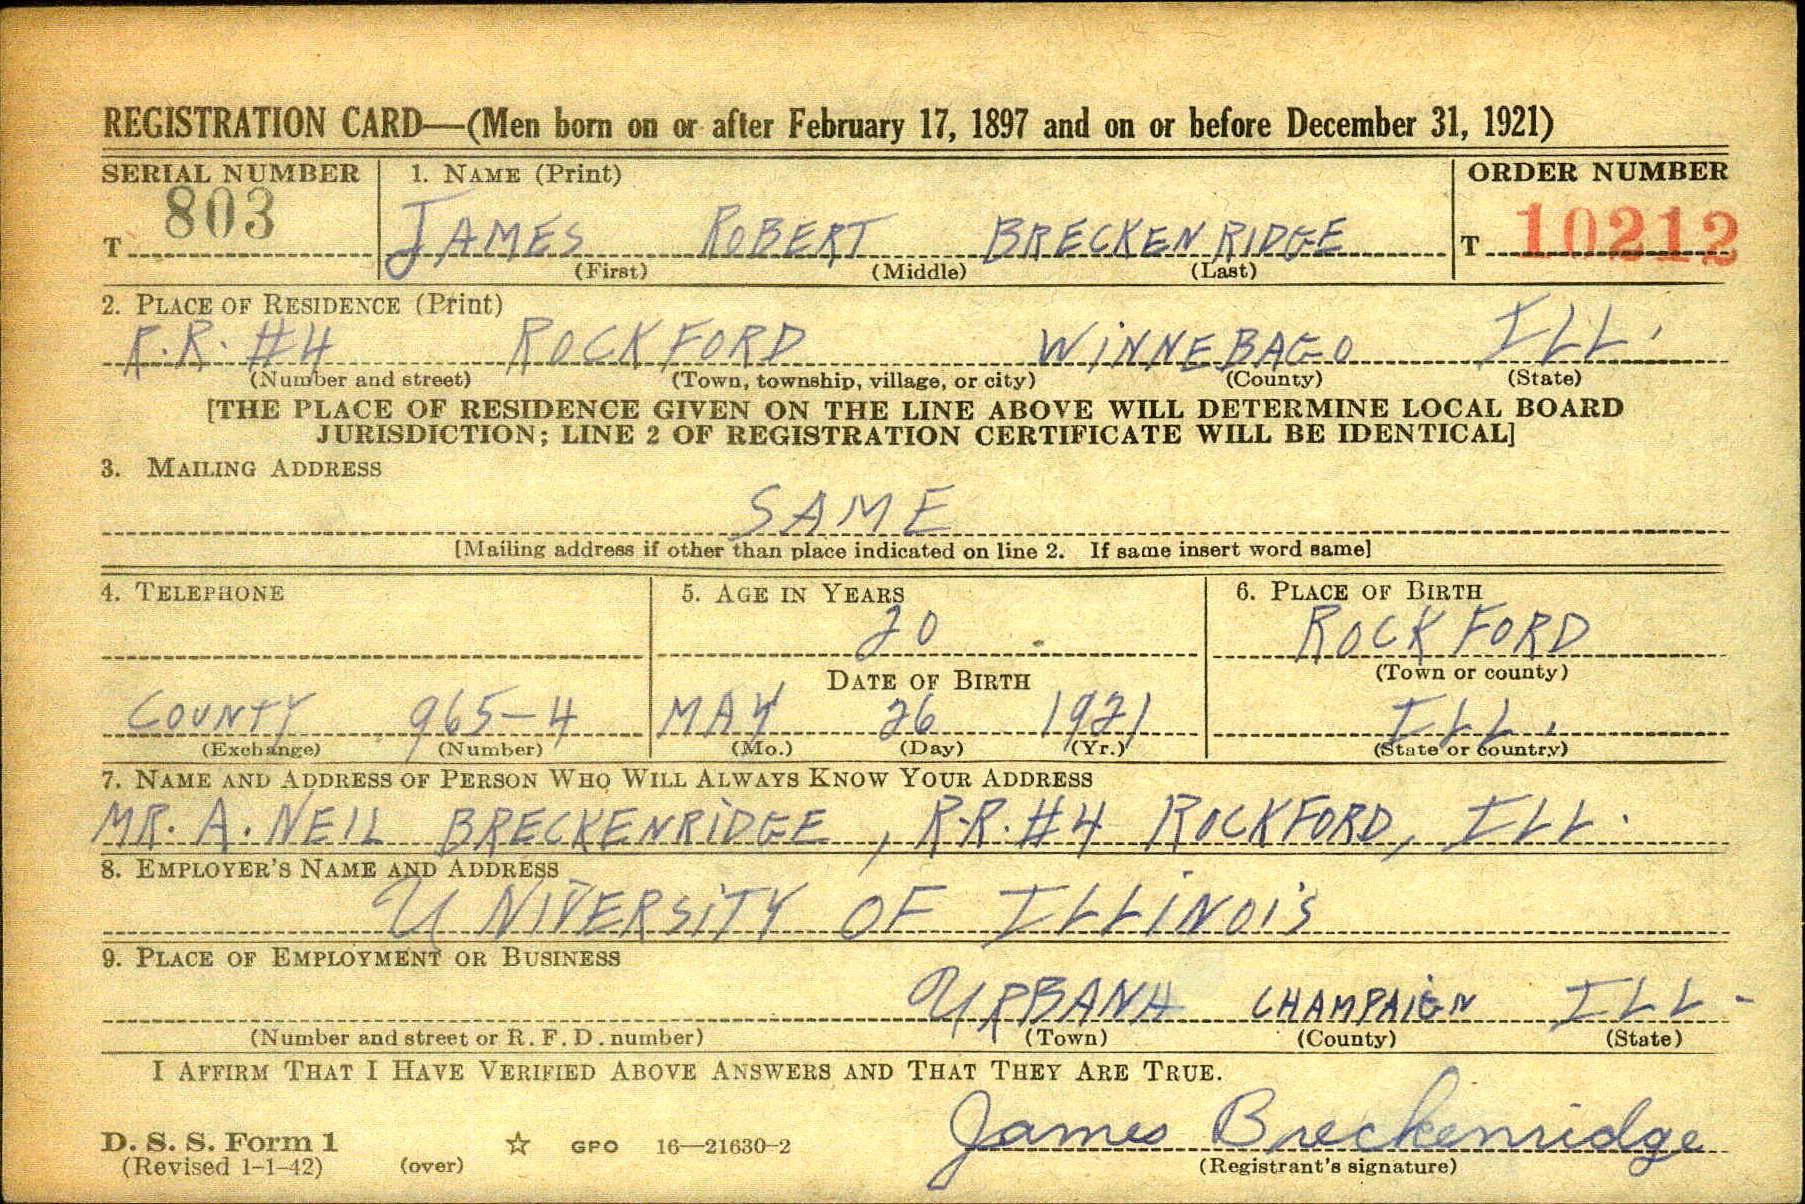 REGISTRATION CARD—(Men born on or after February 17, 1897 and on or before December 31, 1921)
SERIAL NUMBER 1. NAME (Print) ORDER NUMBER
T 803 JAMES ROBERT BRECKENRIDGE T 10212
(First) (Middle) (Last)
2. PLACE OF RESIDENCE (Print)
R.R. #4 ROCKFORD WINNEBAGO ILL.
(Number and street) (Town, township, village, or city) (County) (State)
[THE PLACE OF RESIDENCE GIVEN ON THE LINE ABOVE WILL DETERMINE LOCAL BOARD
JURISDICTION; LINE 2 OF REGISTRATION CERTIFICATE WILL BE IDENTICAL]
3. MAILING ADDRESS
SAME
[Mailing address if other than place indicated on line 2. If same insert word same]
4. TELEPHONE 5. AGE IN YEARS 6. PLACE OF BIRTH
20 ROCKFORD
DATE OF BIRTH (Town or county)
COUNTY 965-4 MAY 26 1921 ILL.
(Exchange) (Number) (Mo.) (Day) (Yr.) (State or country)
7. NAME AND ADDRESS OF PERSON WHO WILL ALWAYS KNOW YOUR ADDRESS
MR. A. NEIL BRECKENRIDGE, R.R. #4 ROCKFORD, ILL.
8. EMPLOYER'S NAME AND ADDRESS
UNIVERSITY OF ILLINOIS
9. PLACE OF EMPLOYMENT OR BUSINESS
URBANA CHAMPAIGN ILL.
(Number and street or R. F. D. number) (Town) (County) (State)
I AFFIRM THAT I HAVE VERIFIED ABOVE ANSWERS AND THAT THEY ARE TRUE.
James Breckenridge
D. S. S. Form 1 ☆ GPO 16—21630-2
(Revised 1-1-42) (over) (Registrant's signature)